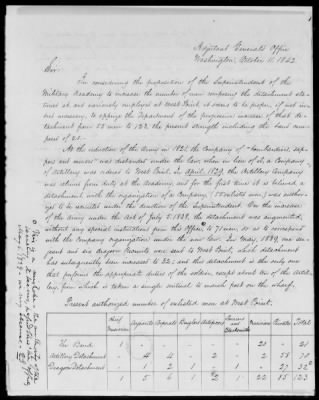 Adjutant General's Office
Washington, October 11, 1842
Sir:
In considering the proposition of the Superintendent of the
Military Academy to increase the number of men composing the detachment sta-
tioned at and variously employed at West Point, it seems to be proper, if not in-
deed necessary, to apprize the Department of the progressive increase of that de-
tachment from 52 men to 123, the present strength including the band com-
posed of 21.
At the reduction of the Army in 1821, the Company of "bombardiers, sap-
pers and miners" was disbanded under the law, when in lieu of it, a Company
of artillery was ordered to West Point. In April, 1829, the Artillery Company
was relieved from duty at the Academy, and for the first time is formed a
detachment with the organization of a Company, enlisted men, was author-
ized to be enlisted under the direction of the Superintendent. On the increase
of the army under the act of July 5 1838, the detachment was augmented,
without any special instructions from this Office to 71 men, so as to correspond
with the Company organization under the new law. In May, 1839, one ser-
geant and six Dragoon Recruits were sent to West Point, which detachment
has subsequently been increased to 32; and this detachment is the only one
that performs the appropriate duties of the soldier, except about ten of the artil-
lery, from which is taken a single sentinel to march post on the wharf.
Present authorized number of enlisted men at West Point.
Chief Musician Sergeants Corporals Buglers Artificers Farriers and Blacksmith Musicians Privates Total
The Band 1 - - - - - 20 - 21
Artillery Detachment - 4 4 - 2 - 2 58 70
Dragoon Detachment - 1 2 1 - 1 - 27 32
1 5 6 1 2 1 22 85 123